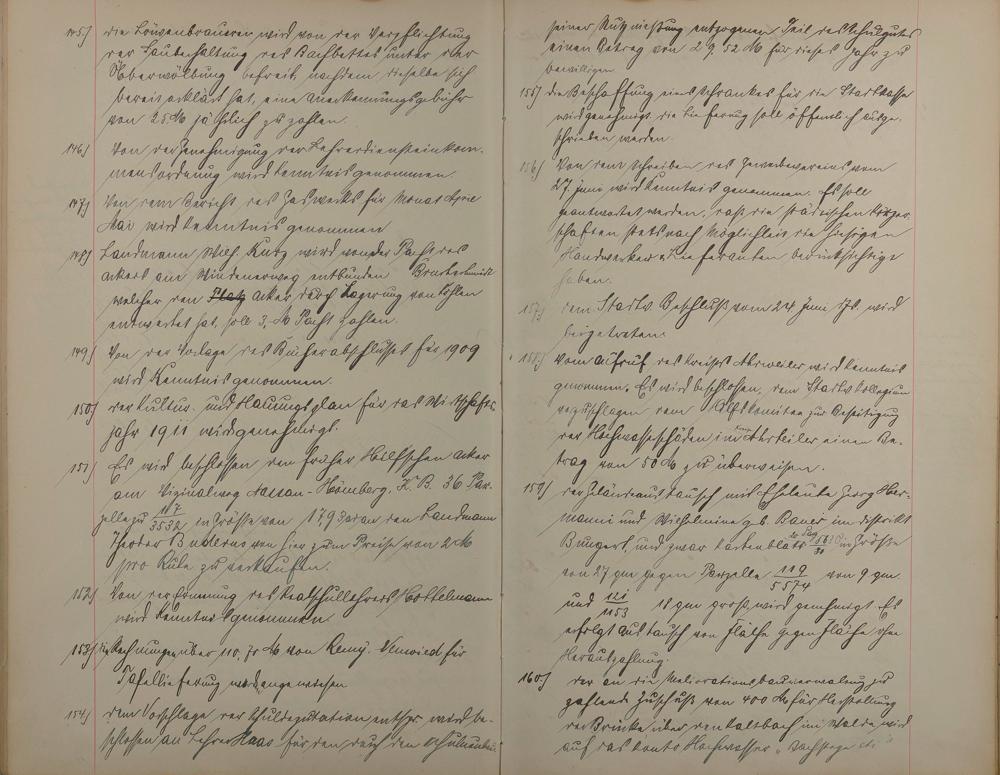 145) die Löwenbrauerei wird von der Verpflichtung
der Sauberhaltung des Bachbettes unter der
Überwölbung befreit, nachdem dieselbe sich
bereit erklärt hat, eine Anerkennungsgebühr
von 25 M jährlich zu zahlen.
146) Von der Genehmigung der Lehrerdiensteinkom-
mensordnung wird Kenntnis genommen.
147) Von dem Bericht des Gaswerks für Monat April
Mai wird Kenntnis genommen
148) Landmann Wilh. Kurz wird von der Pacht des
Ackers am entbunden
welcher den Platz Acker durch Lagerung von Kohlen
entwertet hat, soll 3 M Pacht zahlen.
149) Von der Vorlage des Bücherabschlusses für 1909
wird Kenntnis genommen.
150) der Kultur- und Hauungsplan für das Wirtschafts-
jahr 1911 wird genehmigt.
151) Es wird beschlossen den früher Hilfschen Acker
am Vizinalweg Nassau-Hömberg, K. B. 36 Par-
zelle zu 117/3532 in Größe von 17,93 ar an den Landmann
Theodor Buderus von hier zum Preise von 2 M
pro Rute zu verkaufen.
152) Von der Ernennung des Realschullehrers
wird Kenntnis genommen
153) die Rechnungen über 110,70 M von Remy, Neuwied für
Tafellieferung wird angewiesen
154) dem Vorschlage der Schuldeputation entspr. wird be-
schlossen an Lehrer Haas für den durch den
seiner Nutznießung entzogenen Teil des Schulgutes
einen Betrag von 29,52 M für dieses Jahr zu
bewilligen
155) die Beschaffung eines Schrankes für die Stadtkasse
wird genehmigt, die Lieferung soll öffentlich ausge-
schrieben werden.
156) Von dem Schreiben des Gewerbevereins vom
27. Juni wird Kenntnis genommen. Es soll
geantwortet werden, daß die städtischen Körper-
schaften stets nach Möglichkeit die hiesigen
Handwerker u Lieferanten berücksichtigt
haben.
157) dem Stadtv. Beschluß vom 24 Juni ds. wird
beigetreten.
158) Vom Aufruf des Kreises Ahrweiler wird Kenntnis
genommen. Es wird beschlossen, dem Stadtv. Kollegium
vorzuschlagen dem Hilfskomitee zur Beseitigung
der Hochwasserschäden im Kreise Ahrweiler einen Be-
trag von 50 M zu überweisen.
159) der Geländeaustausch mit Eheleute Georg Her-
manni und Wilhelmine geb. Bauer im Distrikt
Bungert, und zwar Kartenblatt in Größe
von 27 qm gegen Parzelle 119/5574 von 9 qm
und 121/1153 18 qm groß, wird genehmigt. Es
erfolgt Austausch von Fläche gegen Fläche ohne
Herauszahlung.
160) der an die Meliorationsbauverwaltung zu
zahlende Zuschuß von 400 M für Herstellung
der Brücke über den Kaltbach im Walde, wird
auf das Konto Hochwasser